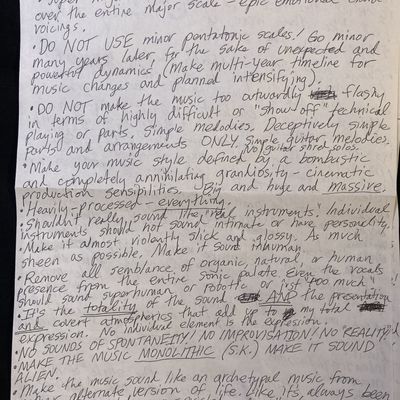 over the entire major scale - epic emotional
voicings.
• DO NOT USE minor pentatonic scales! Go minor
many years later, for the sake of unexpected and
powerful dynamics (Make multi-year timeline for
music changes and planned intensifying).
• DO NOT make the music too outwardly flashy
in terms of highly difficult or "show off" technical
playing or parts. Simple melodies. Deceptively simple
parts and arrangements ONLY. Simple guitar melodies.
No guitar shred solos.
• Make your music style defined by a bombastic
and completely annihilating grandiosity - cinematic
production sensibilities. Big and huge and massive.
• Heavily-processed - everything.
• Shouldn't really sound like "real instruments". Individual
instruments should not sound intimate or have personality.
• Make it almost violently slick and glossy. As much
sheen as possible. Make it sound inhuman.
• Remove all semblance of organic, natural, or human
presence from the entire sonic palate. Even the vocals
should sound superhuman or robotic or just "too much"
• It's the totality of the sound AND the presentation
and covert atmospherics that add up to my total
expression. No individual element is the expression.
• NO SOUNDS OF SPONTANEITY! NO IMPROVISATION! NO "REALITY"!
• MAKE THE MUSIC MONOLITHIC (S.K.) MAKE IT SOUND
ALIEN.
• Make the music sound like an archetypal music from
alternate version of life. Like, it's always been